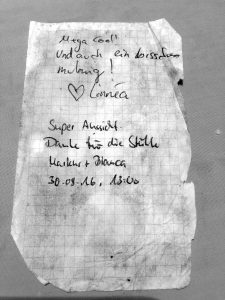 Mega cool!
Und auch ein bisschen
mutig!
♡ Linnéa
Super Ansicht
Danke für die Stühle
Markus + Bianca
30-09-16, 13:00